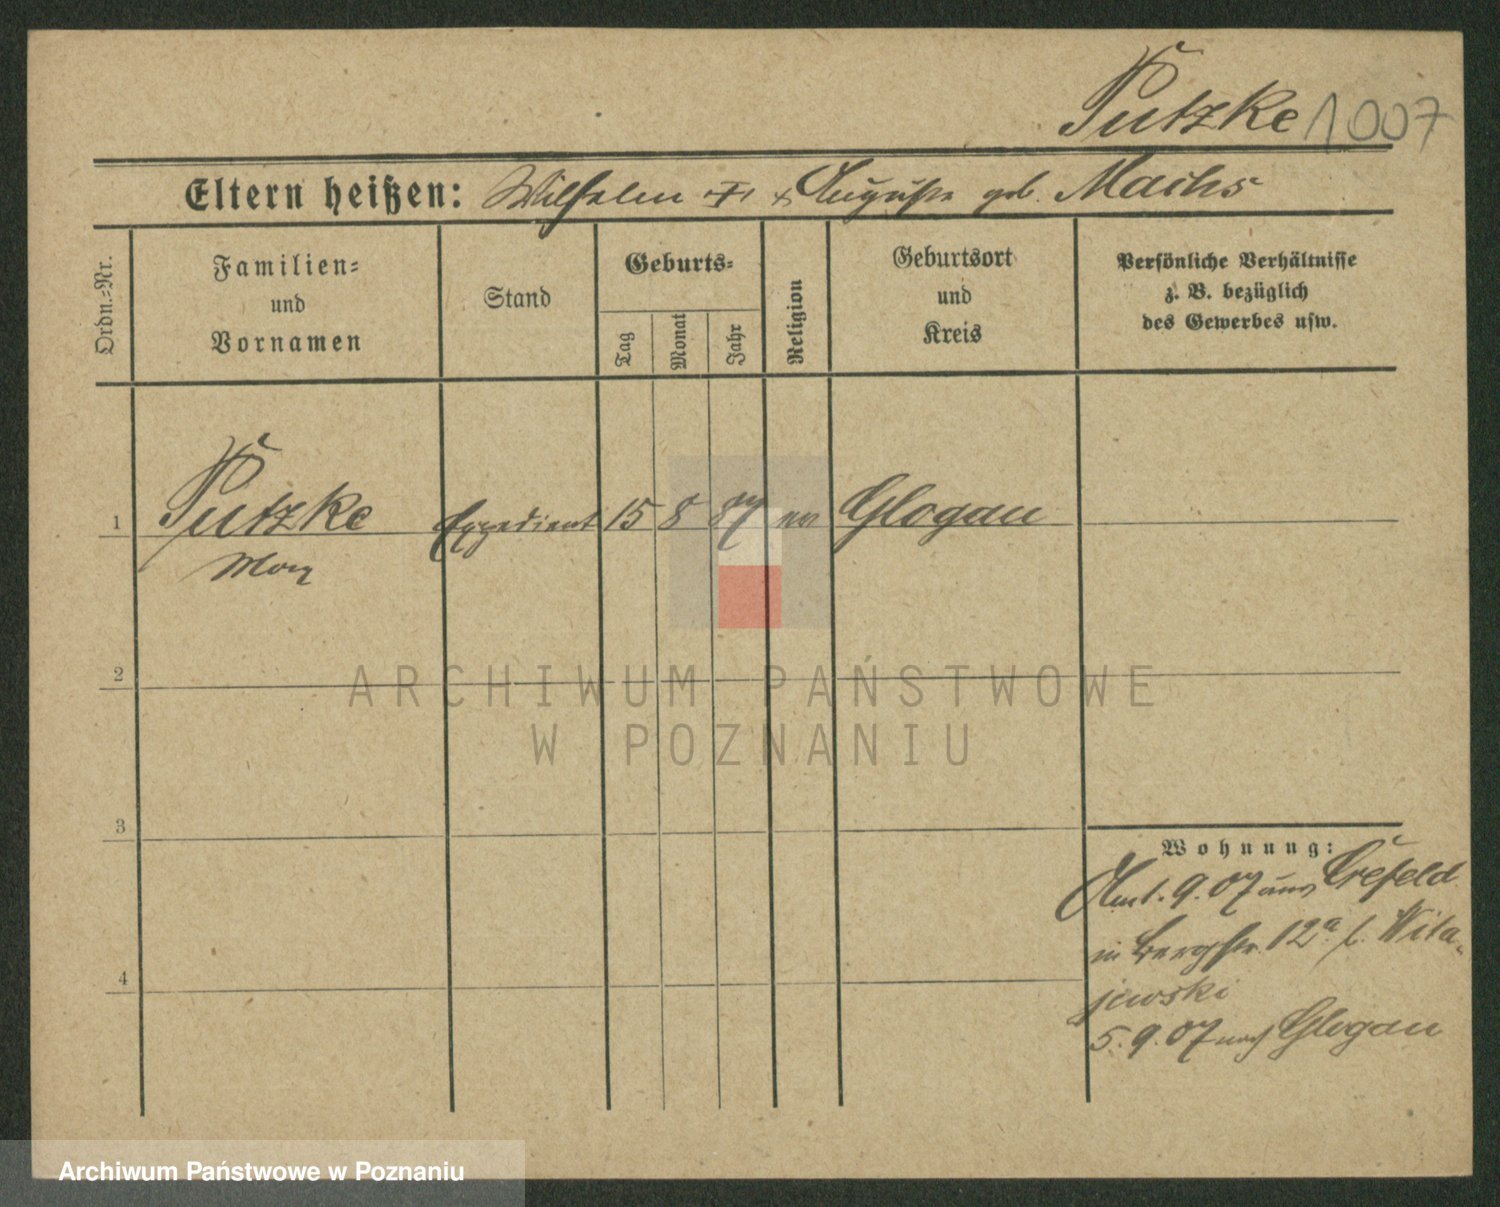 Putzke 1007
Eltern heißen: Wilhelm + Auguste geb. Machs
Ordn.=Nr.
Familien=
und
Vornamen
Stand
Geburts=
Tag
Monat
Jahr
Religion
Geburtsort
und
Kreis
Persönliche Verhältnisse
z. B. bezüglich
des Gewerbes usw.
1 Putzke Expedient 15 8 87 ev Glogau
Max
2
ARCHIWUM PAŃSTWOWE
W POZNANIU
3
Wohnung:
9.07 aus Crefeld
in Bergstr. 12a b. Wita-
jewski
5.9.07 nach Glogau
4
Archiwum Państwowe w Poznaniu